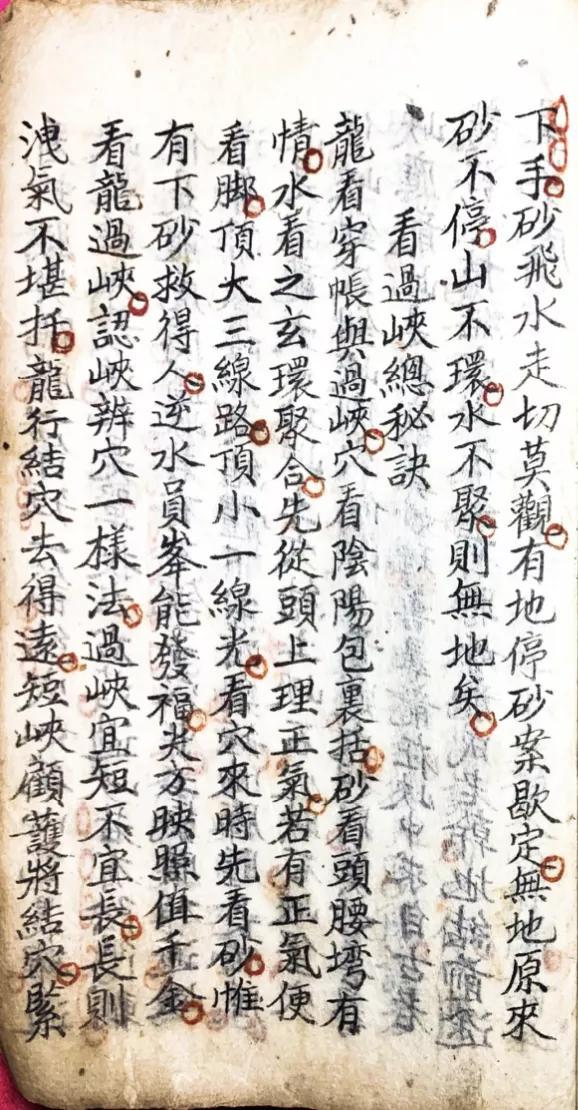 下手砂飛水走切莫觀有地停砂案歇定無地原來
砂不停山不環水不聚則無地矣
看過峽總秘訣
龍看穿帳與過峽穴看陰陽包裹括砂看頭腰塆有
情水看之玄環聚合先從頭上理正氣若有正氣便
看脚頂大三線路頂小一線光看穴來時先看砂惟
有下砂救得人逆水員峯能發福尖方映照值千金
看龍過峽認峽辨穴一樣法過峽宜短不宜長長則
洩氣不堪扦龍行結穴去得遠短峽顧護將結穴緊